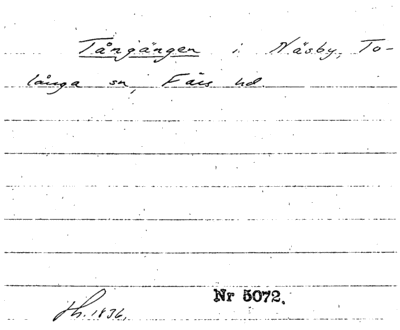 Tångängen i Näsby, To-
långa sn, Färs hd.
Nr 5072.
1936.